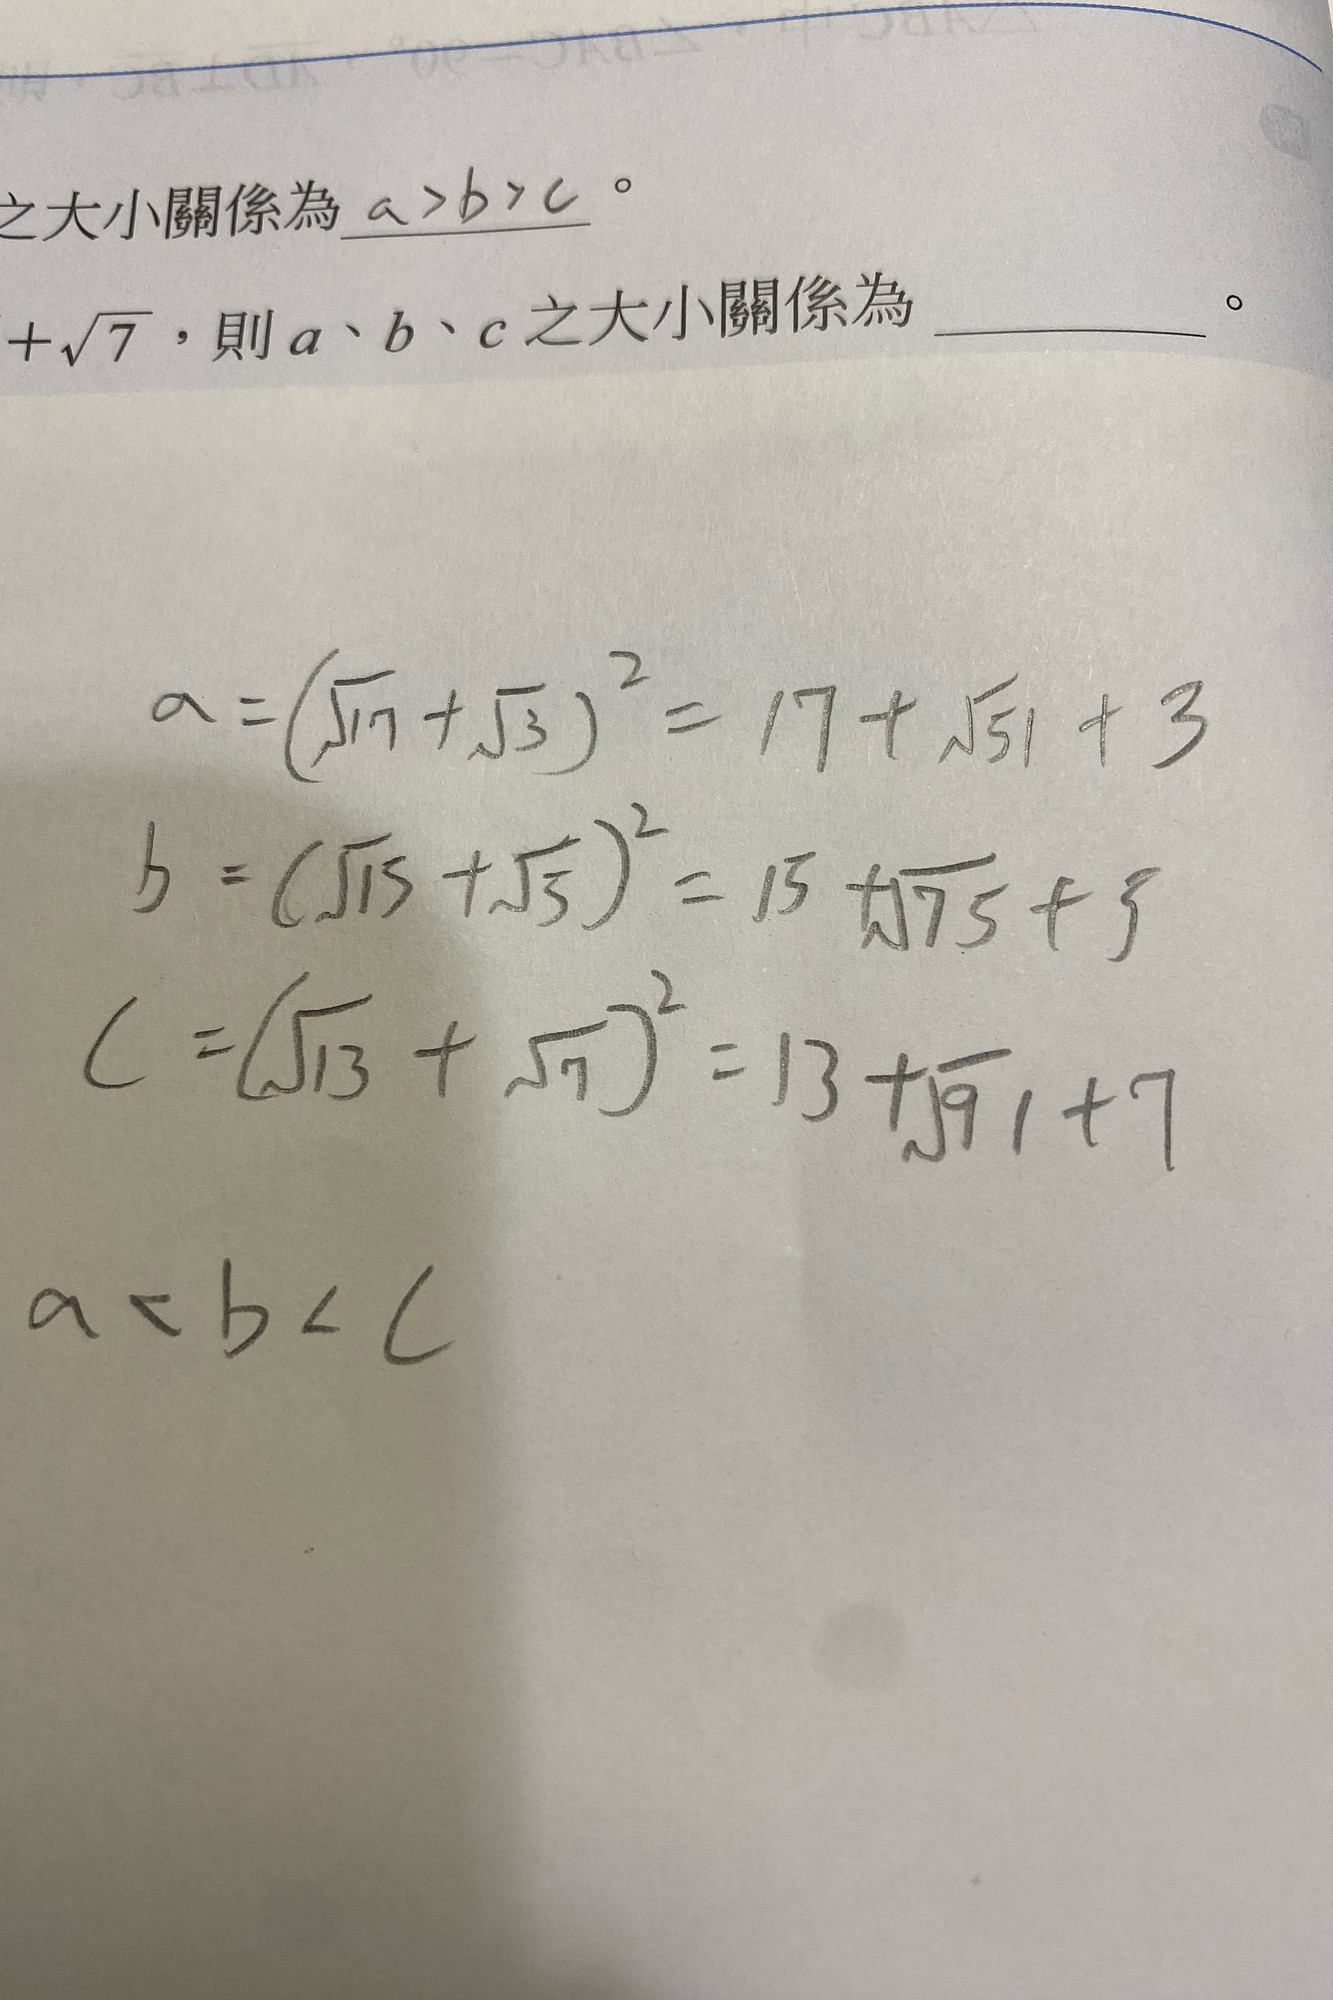 之大小關係為 a>b>c 。
+√7，則 a、b、c 之大小關係為 ________。
a=(√17+√3)²=17+√51+3
b=(√15+√5)²=15+√75+5
c=(√13+√7)²=13+√91+7
a<b<c